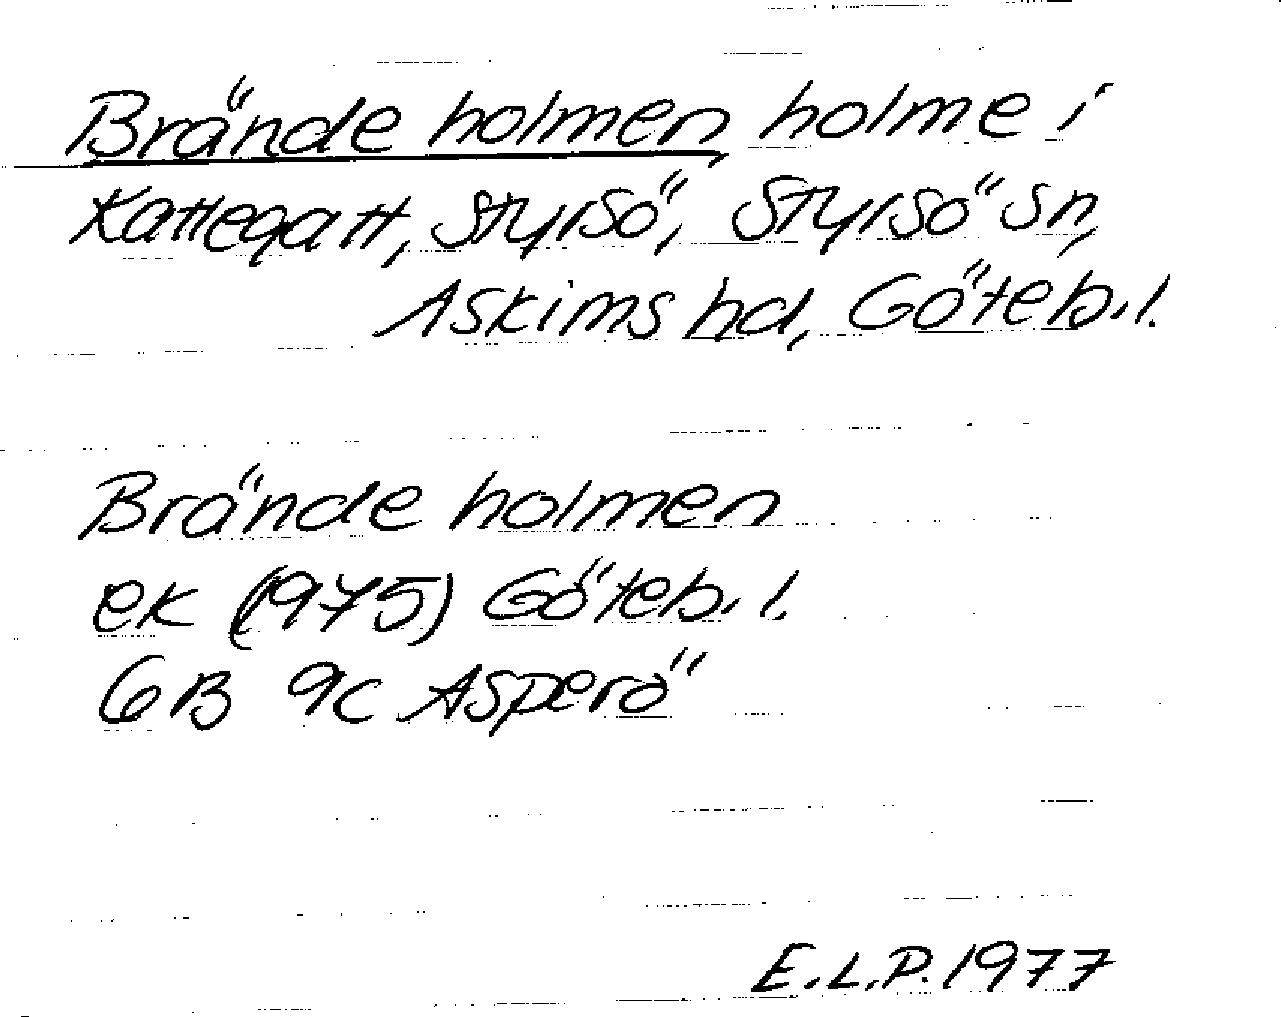 Brände holmen, holme i
Kattegatt, Styrsö, Styrsö sn,
Askims hd, Göteb. l.
Brände holmen
ek (1975) Göteb. l.
6B 9c Asperö
E.L.P. 1977